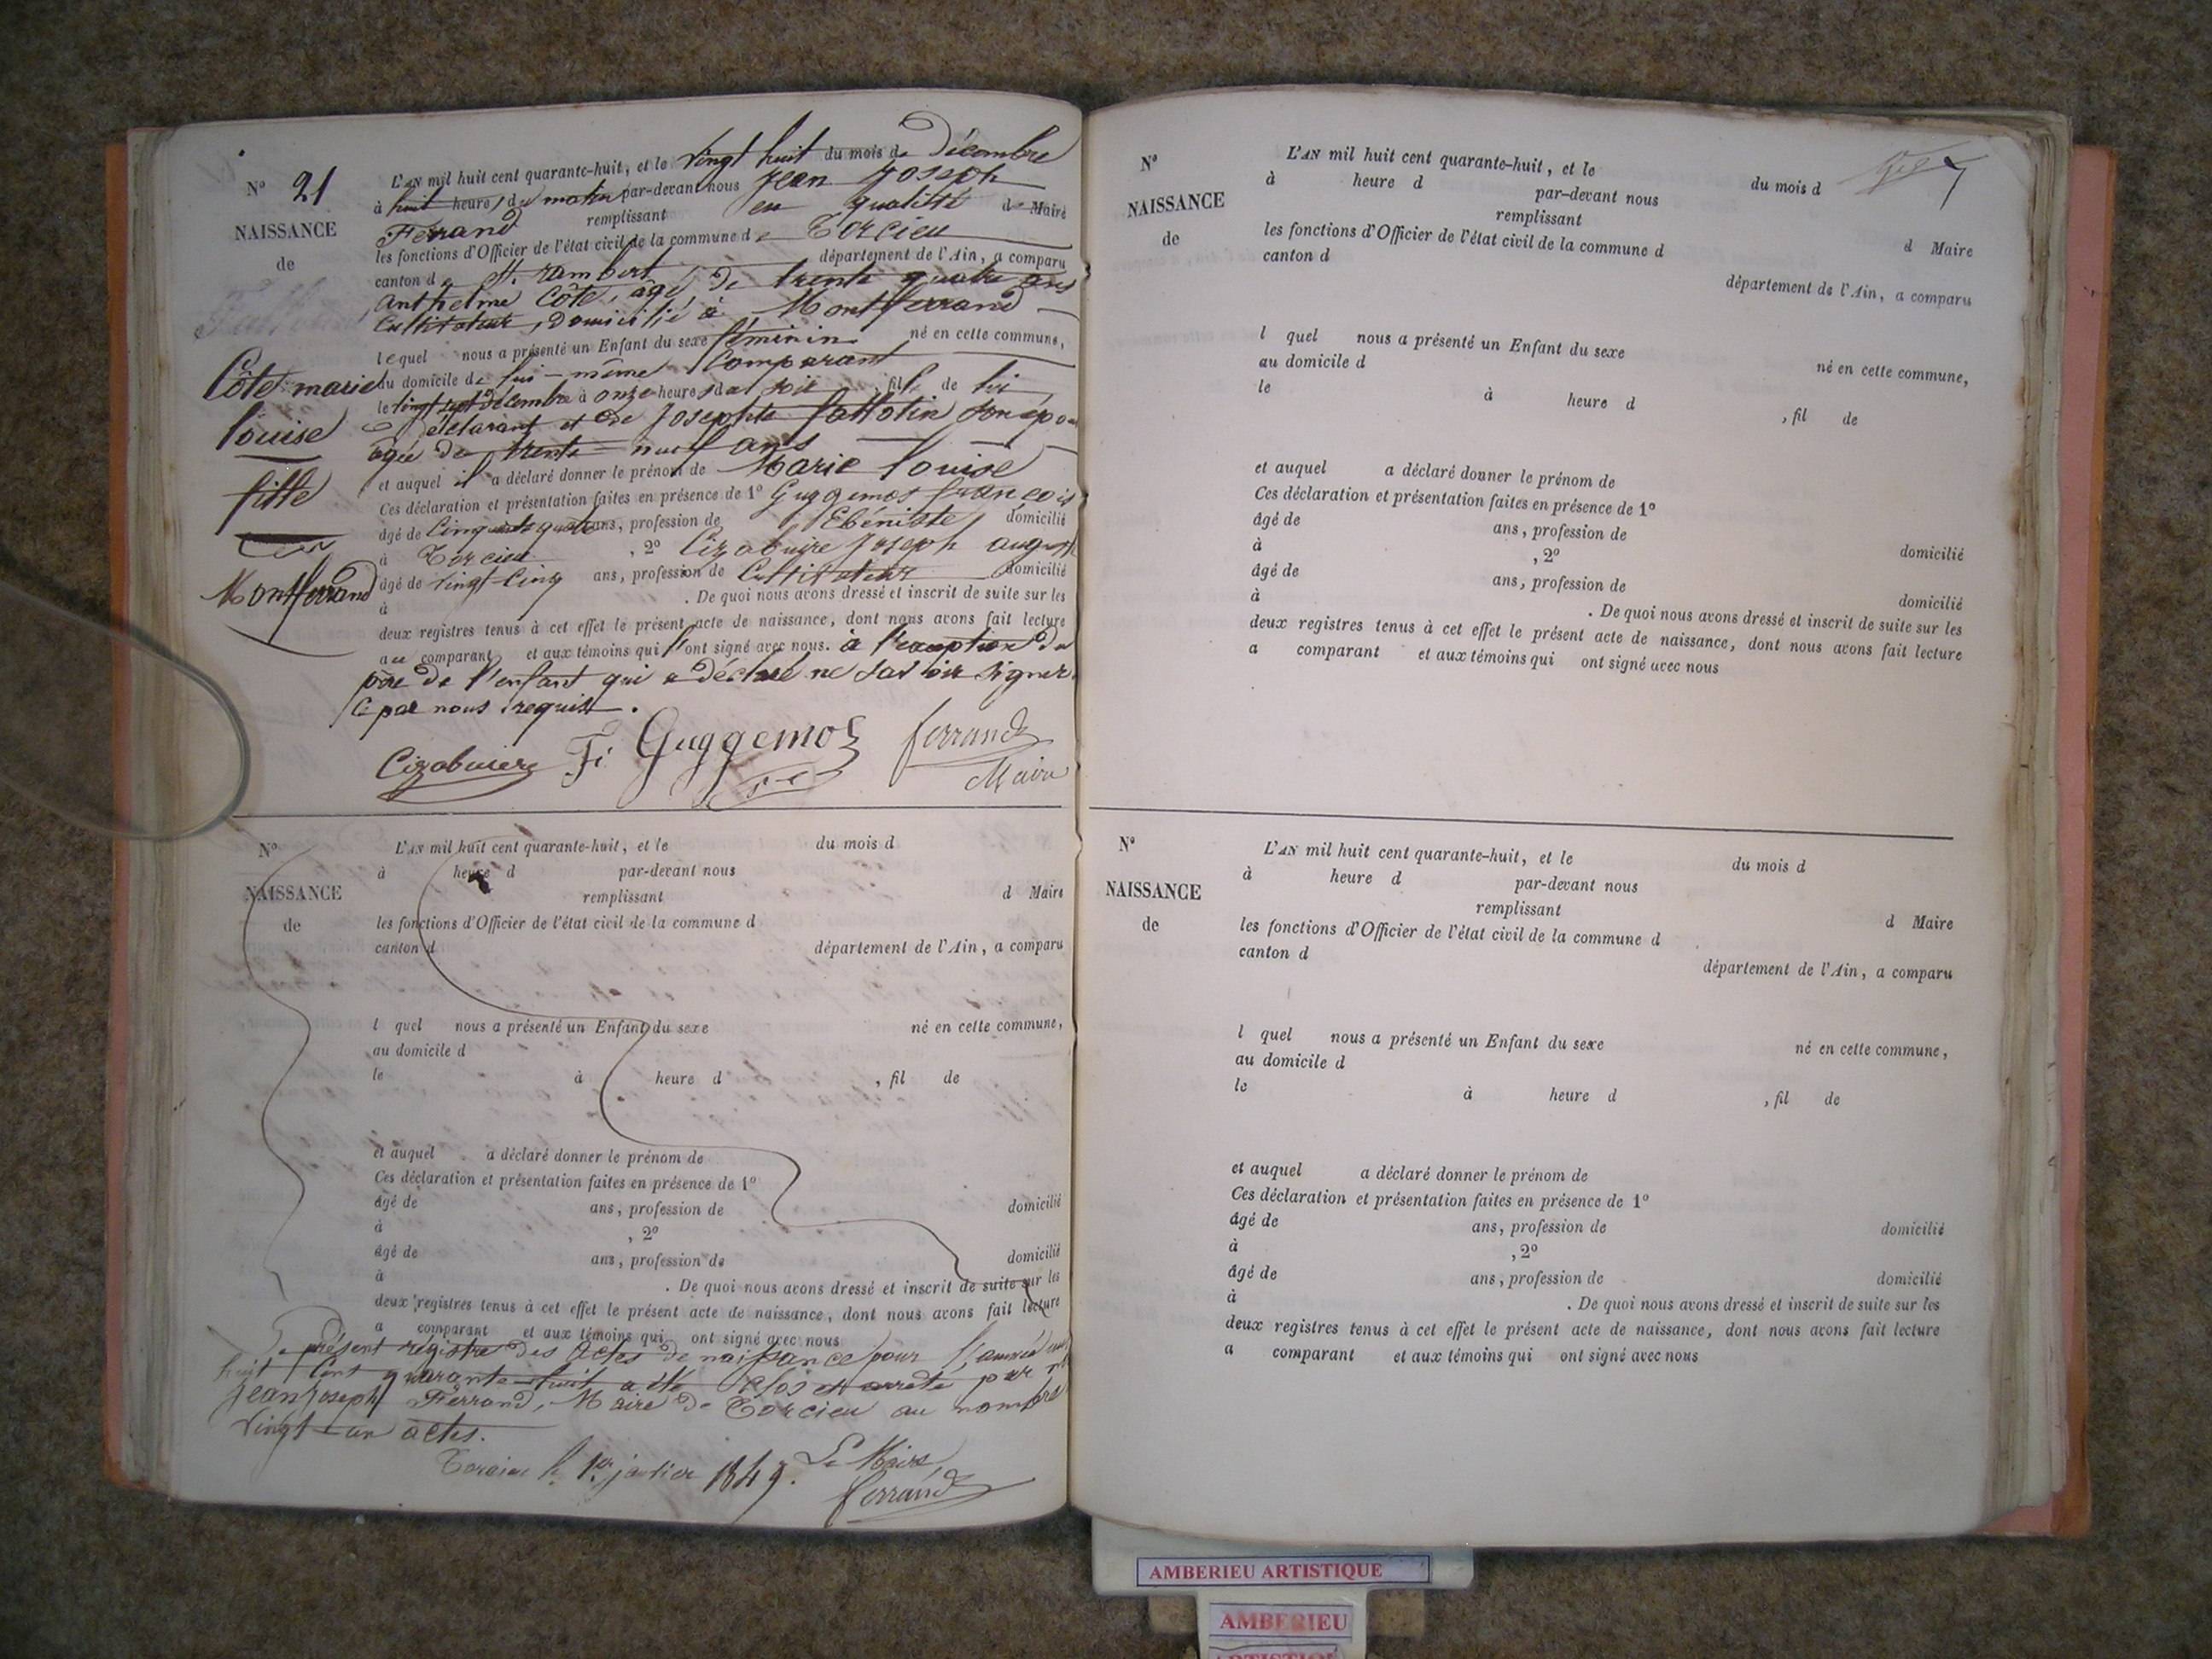 N° 21
NAISSANCE
de
Côte marie
louise
fille
Montferrand
L'AN mil huit cent quarante-huit, et le vingt huit du mois de Décembre
à huit heures du matin par-devant nous Jean Joseph
Ferrand remplissant en qualité de Maire
les fonctions d'Officier de l'état civil de la commune de Torcieu
canton de St. rambert département de l'Ain, a comparu
anthelme Côte, âgé de trente quatre ans
Cultivateur, domicilié à Montferrand
lequel nous a présenté un Enfant du sexe féminin né en cette commune,
au domicile de lui-même Comparant
le vingt sept décembre à onze heures du soir, fille de lui
déclarant et de Josephte son épou
âgée de trente neuf ans
et auquel il a déclaré donner le prénom de Marie louise
Ces déclaration et présentation faites en présence de 1° Guggemos françois
âgé de Cinquante quatre ans, profession de Ebéniste domicilié
à Torcieu , 2° Cizabuire Joseph august
âgé de vingt Cinq ans, profession de Cultivateur domicilié
à . De quoi nous avons dressé et inscrit de suite sur les
deux registres tenus à cet effet le présent acte de naissance, dont nous avons fait lecture
au comparant et aux témoins qui l'ont signé avec nous. à l'exception du
père de l'enfant qui a déclaré ne savoir signer
par nous requis.
Cizabuire Fs Guggemos ferrand
Maire
N°
NAISSANCE
de
L'AN mil huit cent quarante-huit, et le du mois d
à heure d par-devant nous
remplissant d Maire
les fonctions d'Officier de l'état civil de la commune d
canton d département de l'Ain, a comparu
l quel nous a présenté un Enfant du sexe né en cette commune,
au domicile d
le à heure d , fil de
et auquel a déclaré donner le prénom de
Ces déclaration et présentation faites en présence de 1°
âgé de ans, profession de domicilié
à , 2°
âgé de ans, profession de domicilié
à . De quoi nous avons dressé et inscrit de suite sur les
deux registres tenus à cet effet le présent acte de naissance, dont nous avons fait lecture
a comparant et aux témoins qui ont signé avec nous
Le présent régistre des Actes de naissance pour l'année mil
huit Cent quarante-huit a été Clos et arrêté par
Jean Joseph Ferrand, Maire de Torcieu au nombre
vingt-un actes.
Torcieu le 1er janvier 1849. Le Maire,
ferrand
N°
NAISSANCE
de
L'AN mil huit cent quarante-huit, et le du mois d
à heure d par-devant nous
remplissant d Maire
les fonctions d'Officier de l'état civil de la commune d
canton d département de l'Ain, a comparu
l quel nous a présenté un Enfant du sexe né en cette commune,
au domicile d
le à heure d , fil de
et auquel a déclaré donner le prénom de
Ces déclaration et présentation faites en présence de 1°
âgé de ans, profession de domicilié
à , 2°
âgé de ans, profession de domicilié
à . De quoi nous avons dressé et inscrit de suite sur les
deux registres tenus à cet effet le présent acte de naissance, dont nous avons fait lecture
a comparant et aux témoins qui ont signé avec nous
N°
NAISSANCE
de
L'AN mil huit cent quarante-huit, et le du mois d
à heure d par-devant nous
remplissant d Maire
les fonctions d'Officier de l'état civil de la commune d
canton d département de l'Ain, a comparu
l quel nous a présenté un Enfant du sexe né en cette commune,
au domicile d
le à heure d , fil de
et auquel a déclaré donner le prénom de
Ces déclaration et présentation faites en présence de 1°
âgé de ans, profession de domicilié
à , 2°
âgé de ans, profession de domicilié
à . De quoi nous avons dressé et inscrit de suite sur les
deux registres tenus à cet effet le présent acte de naissance, dont nous avons fait lecture
a comparant et aux témoins qui ont signé avec nous
AMBERIEU ARTISTIQUE
AMBERIEU
ARTISTIQUE